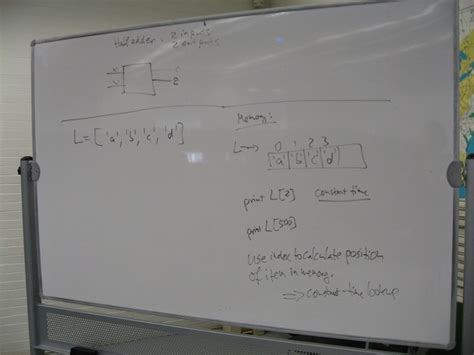 Half adder: 2 inputs
2 outputs
X
Y
C
Z
L=['a','b','c','d']
Memory:
0 1 2 3
L→ ['a'|'b'|'c'|'d']
print L[2] constant time
print L[500]
Use index to calculate position
of item in memory.
⇒ constant-time lookup